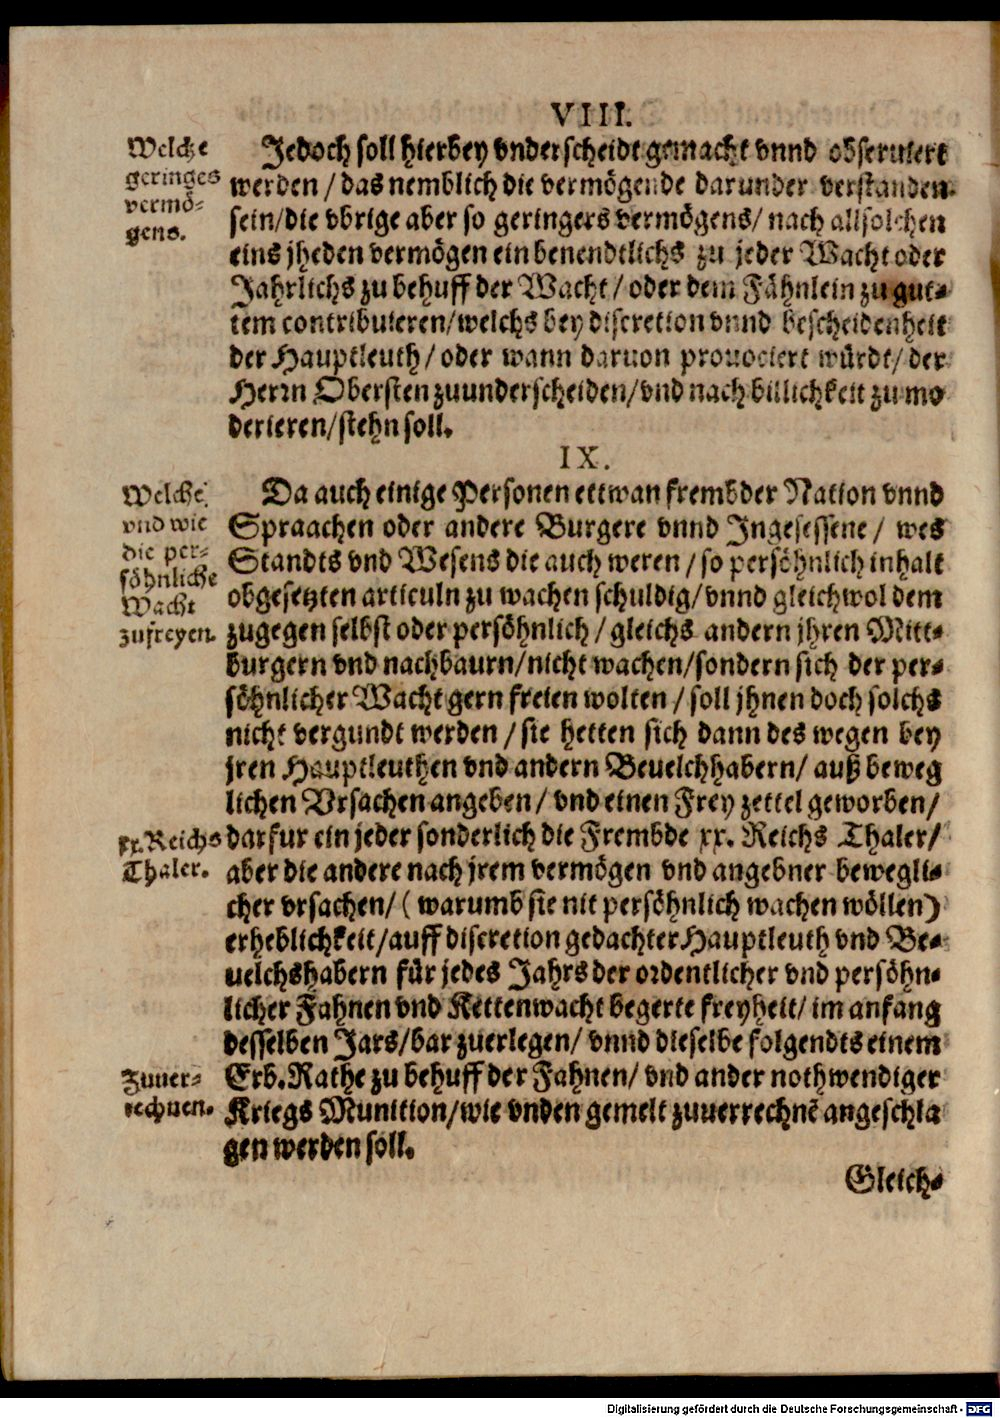 VIII.
Welche
geringes
vermö-
gens.
Jedoch soll hierbey vnderscheidt gemacht vnnd obseruiert
werden / das nemblich die vermögende darunder verstanden
sein/die vbrige aber so geringers vermögens/ nach allsolchen
eins jheden vermögen ein benendtlichs zu jeder Wacht oder
Jahrlichs zu behuff der Wacht / oder dem Fähnlein zu gut-
tem contribuieren/welchs bey discretion vnnd bescheidenheit
der Hauptleuth / oder wann daruon prouociert würdt/ der
Herrn Obersten zuunderscheiden/vnd nach billichkeit zu mo
derieren/stehn soll.
IX.
Welche
vnd wie
die per-
söhnliche
Wacht
zufreyen.
Da auch einige Personen ettwan frembder Nation vnnd
Spraachen oder andere Burgere vnnd Ingesessene / wes
Standts vnd Wesens die auch weren / so persöhnlich inhalt
obgesetzten articuln zu wachen schuldig/ vnnd gleichwol dem
zugegen selbst oder persöhnlich / gleichs andern jhren Mitt-
burgern vnd nachbaurn/nicht wachen/sondern sich der per-
söhnlicher Wacht gern freien wolten / soll jhnen doch solchs
nicht vergundt werden / sie hetten sich dann des wegen bey
jren Hauptleuthen vnd andern Beuelchhabern/ auß beweg
lichen Vrsachen angeben / vnd einen Frey zettel geworben/
xx. Reichs
Thaler.
darfur ein jeder sonderlich die Frembde xx. Reichs Thaler/
aber die andere nach jrem vermögen vnd angebner bewegli-
cher vrsachen/ ( warumb sie nit persöhnlich wachen wöllen)
erheblichkeit/auff discretion gedachter Hauptleuth vnd Be-
uelchshabern für jedes Jahrs der ordentlicher vnd persöhn-
licher Fahnen vnd Kettenwacht begerte freyheit/ im anfang
desselben Jars/bar zuerlegen/ vnnd dieselbe folgendts einem
Zuuer-
rechnen.
Erb. Rathe zu behuff der Fahnen/ vnd ander nothwendiger
Kriegs Munition/wie vnden gemelt zuuerrechnē angeschla
gen werden soll.
Gleich-
Digitalisierung gefördert durch die Deutsche Forschungsgemeinschaft - DFG